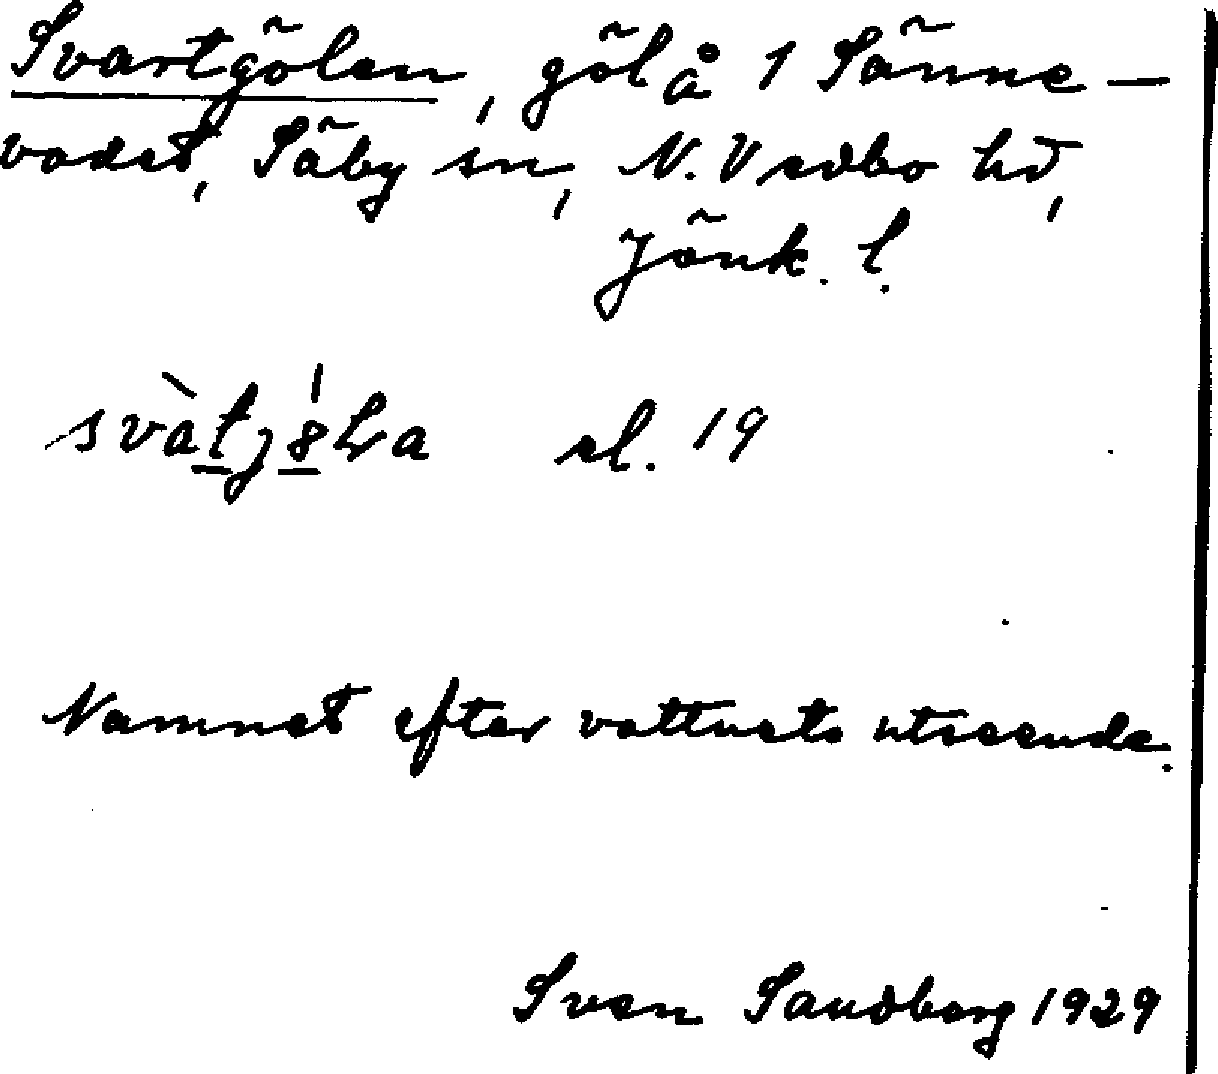 Svartgölen, göl å 1 Sänne-
vadet, Säby sn, N. Vedbo hd,
Jönk. l.
el. 19
Namnet efter vattnets utseende.
Sven Sandberg 1929